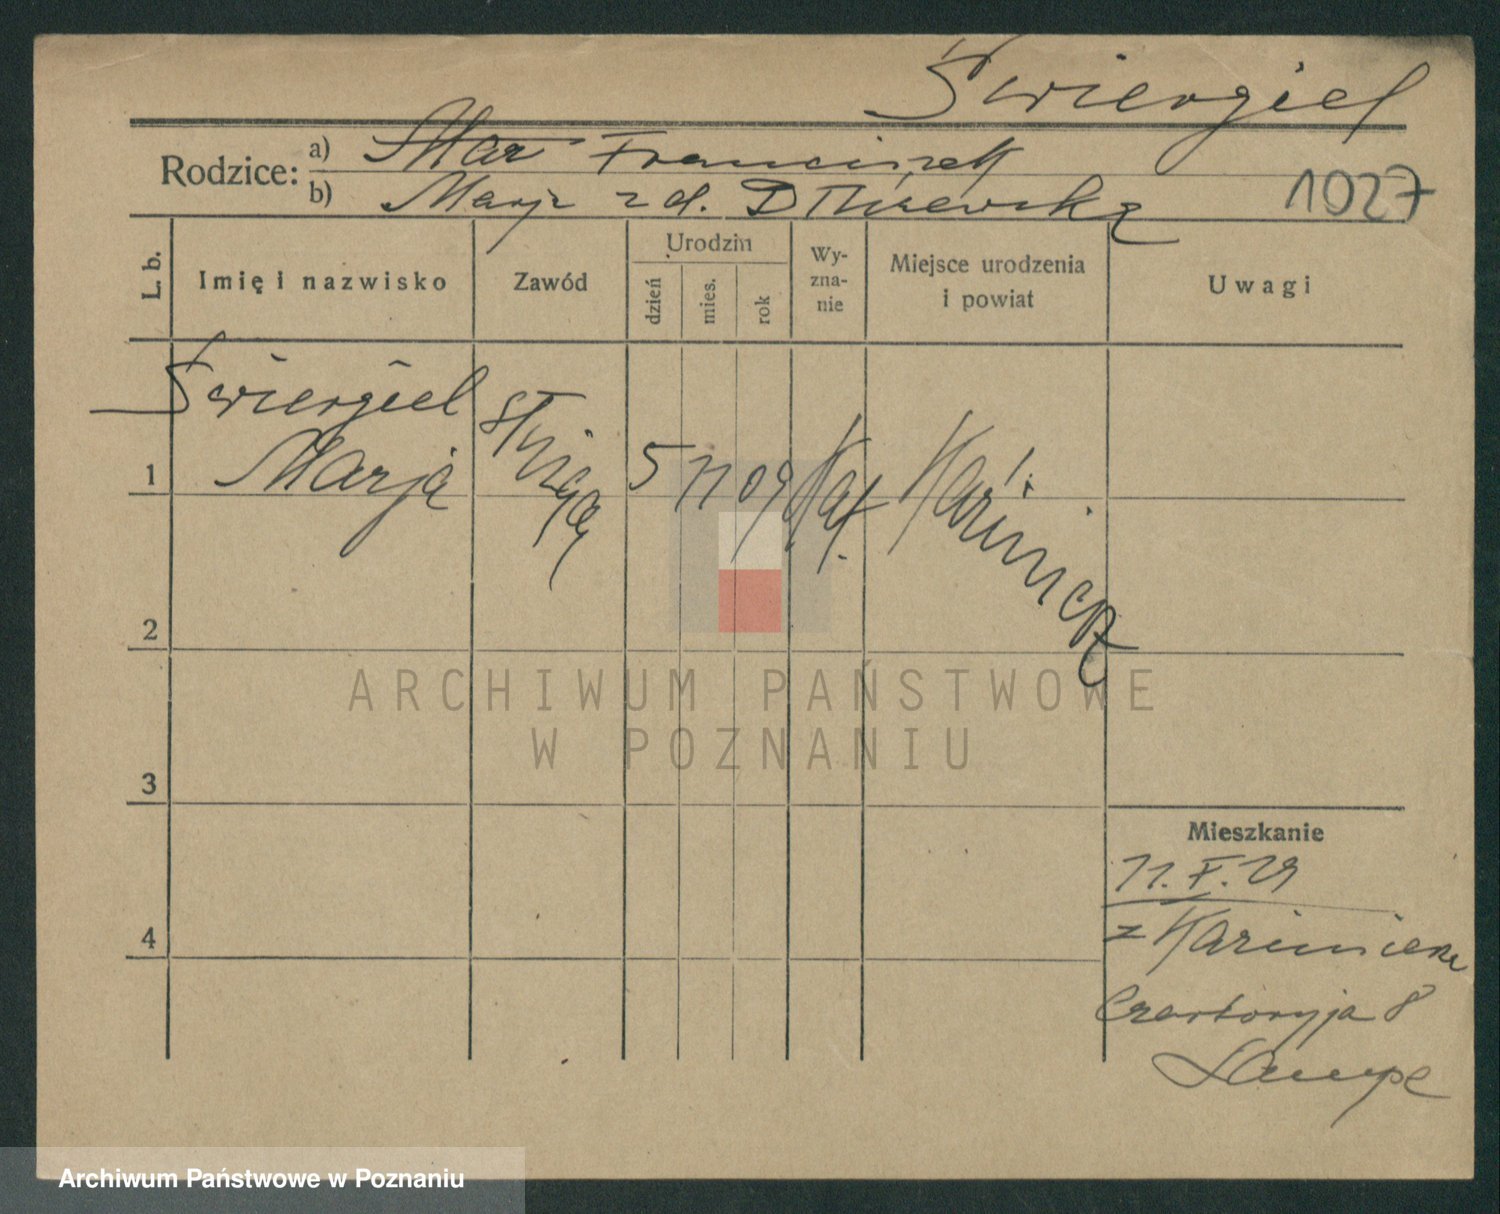 Świergiel
Rodzice: a) Franciszek
b) Marja z d.
1027
L. b.
Imię i nazwisko
Zawód
Urodzin
dzień
mies.
rok
Wy-
zna-
nie
Miejsce urodzenia
i powiat
Uwagi
Świergiel
Marja
służąca
5 11 09 kat.
Kaźmierz
1
2
3
4
Mieszkanie
11.X.29
z Kaźmierza
Czartoryja 8
ARCHIWUM PAŃSTWOWE
W POZNANIU
Archiwum Państwowe w Poznaniu